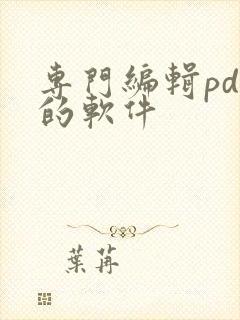 專門編輯pd
的軟件
葉苒